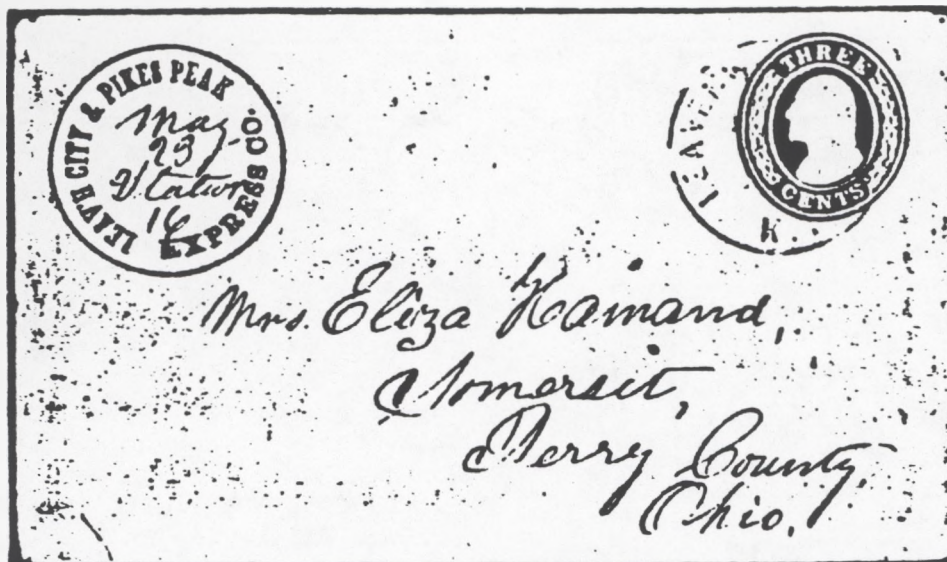 LEAV'H CITY & PIKES PEAK
EXPRESS CO.
May
23
Station
16
THREE
CENTS
LEAV
K
Mrs. Eliza Hamand,
Somerset,
Perry County.
Ohio.